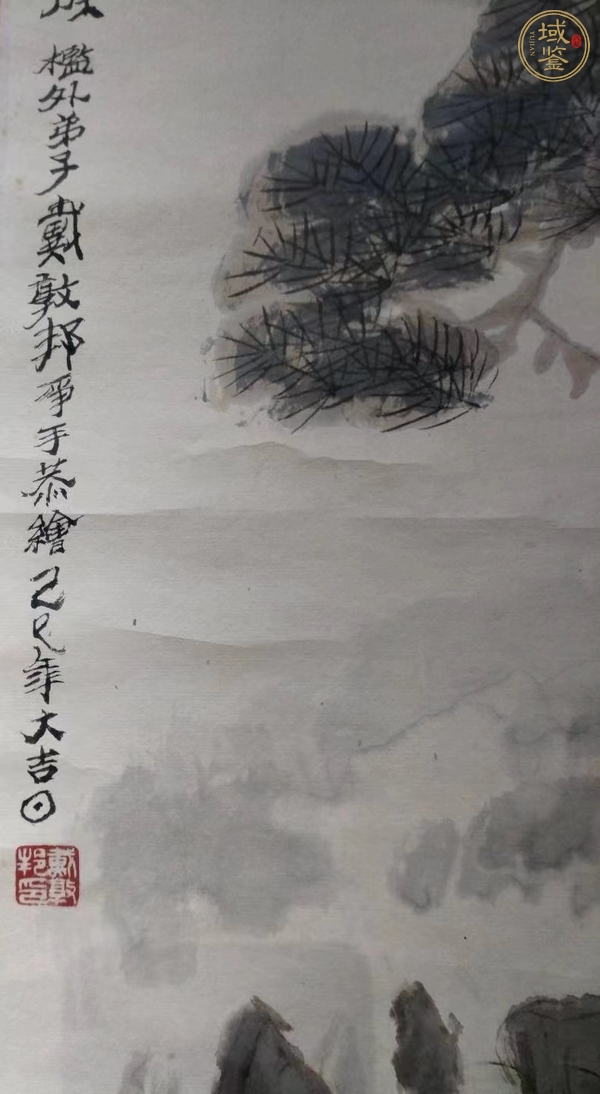 檻外弟子戴敦邦爭手恭繪己巳年大吉日
戴敦邦印
域鉴
YUJIAN